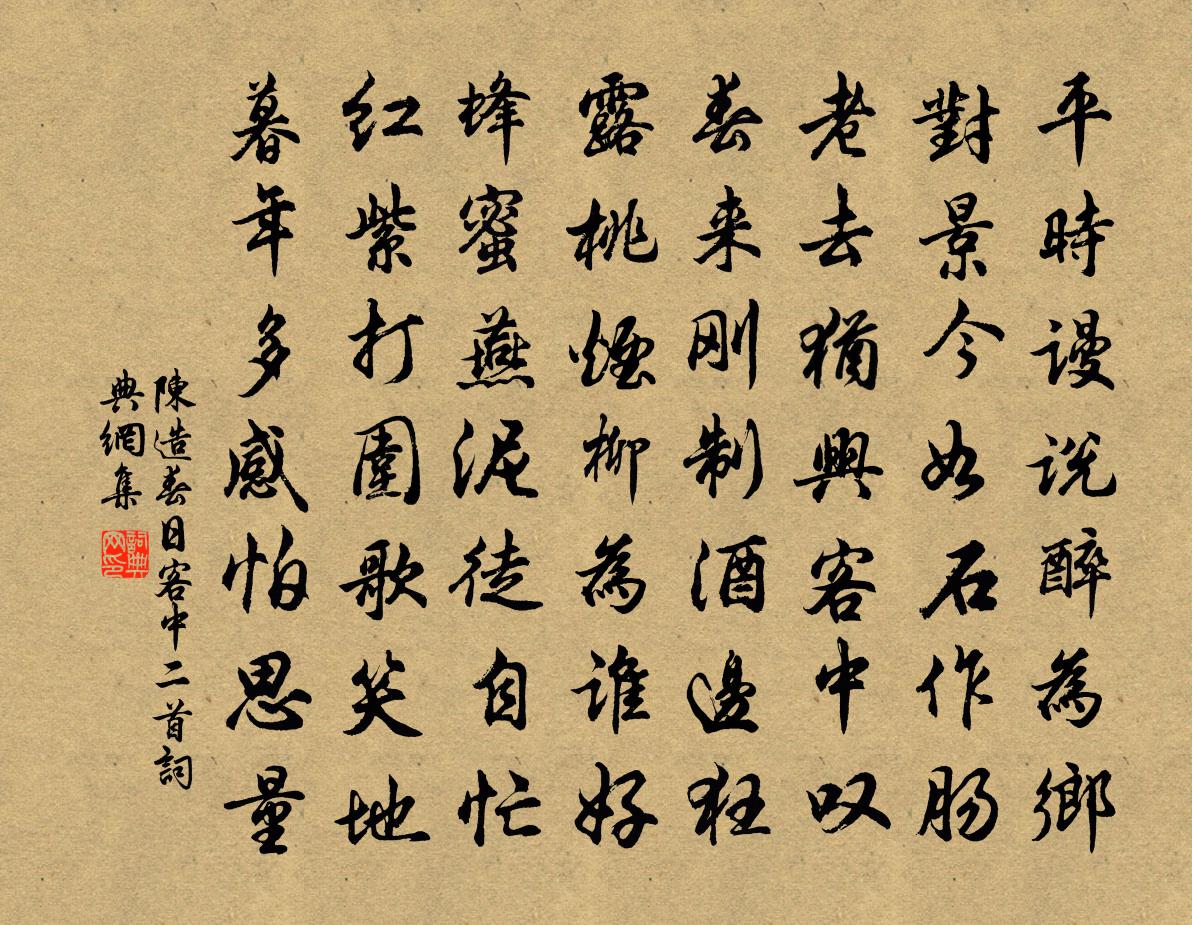 平時謾説醉為鄉
對景今如石作肠
老去猶興客中叹
春来刚制酒邊狂
露桃煙柳為誰好
蜂蜜燕泥徒自忙
红紫打圍歌笑地
暮年多感怕思量
陳造春日客中二首詞
典網集
詞典网印